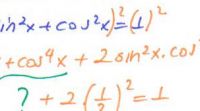 in²x + cos²x)² = (1)²
+ cos⁴x + 2 sin²x . cos
? + 2 (1/2)² = 1